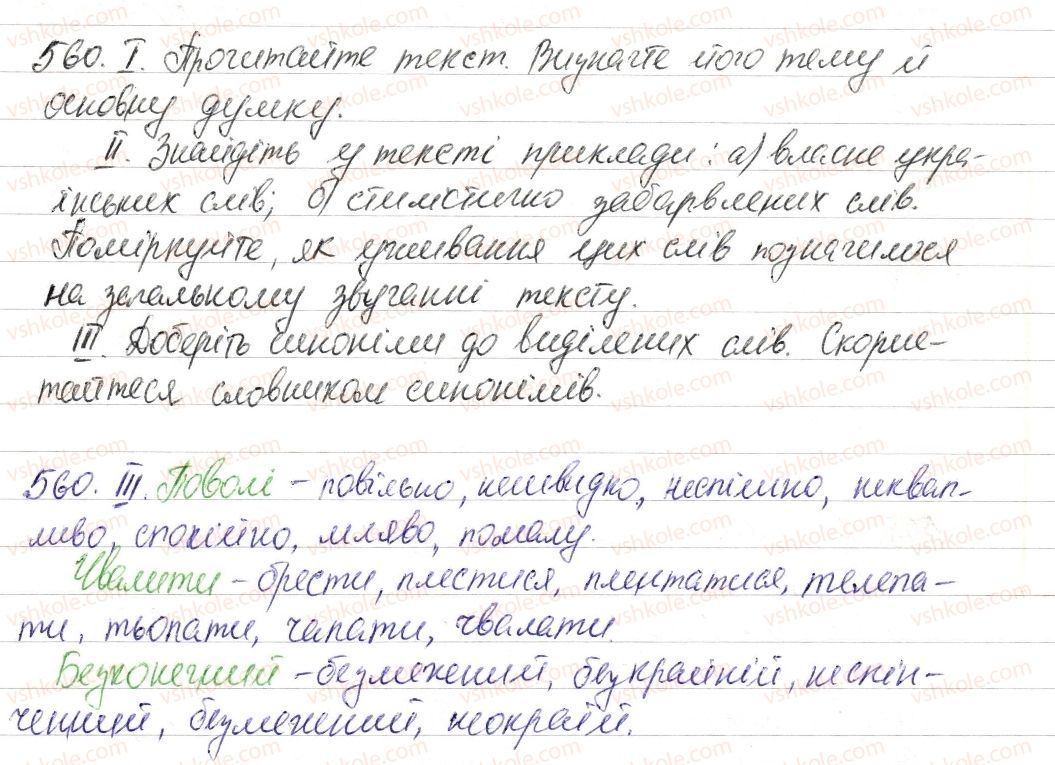 560. I. Прочитайте текст. Визначте його тему й
основну думку.
II. Знайдіть у тексті приклади: а) власне укра-
їнських слів; б) стилістично забарвлених слів.
Поміркуйте, як уживання цих слів позначилося
на загальному звучанні тексту.
III. Доберіть синоніми до виділених слів. Скорис-
тайтеся словником синонімів.
560. III. Поволі – повільно, нешвидко, неспішно, неквап-
ливо, спокійно, мляво, помалу.
Чвалити – брести, плестися, плентатися, телепа-
ти, тьопати, чапати, чвалати.
Безконечний – безмежний, безкрайній, нескін-
ченний, безмежний, неокраїй.